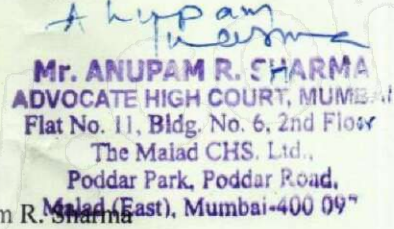 Anupam
Sharma
Mr. ANUPAM R. SHARMA
ADVOCATE HIGH COURT, MUMBAI
Flat No. 11, Bldg. No. 6, 2nd Floor
The Malad CHS. Ltd.,
Poddar Park, Poddar Road,
Malad (East), Mumbai-400 097
m R. Sharma